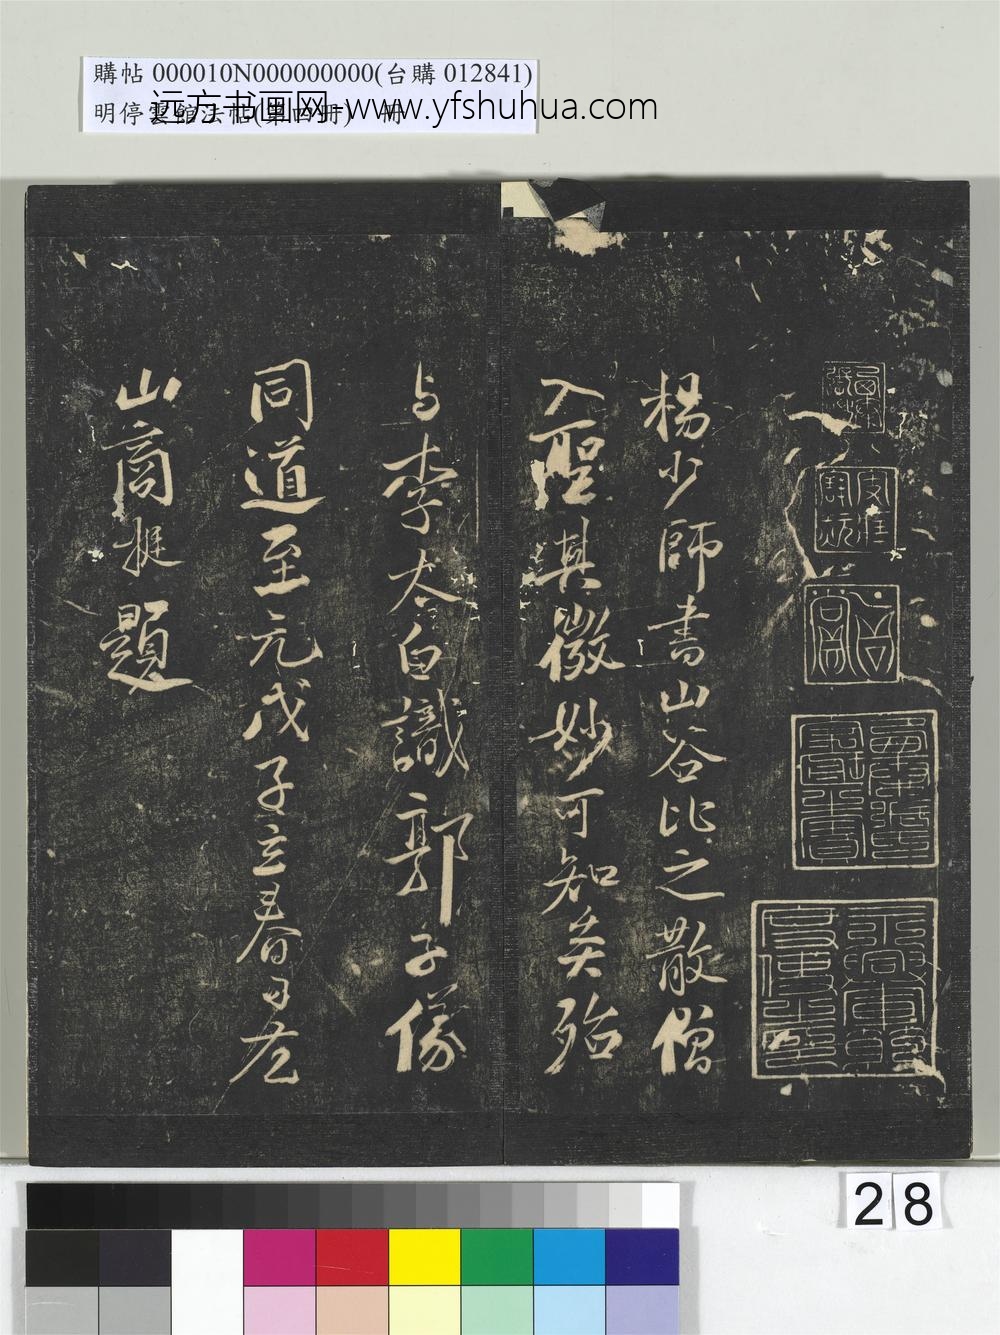 購帖 000010N000000000(台購 012841)
明停雲館法帖(第四冊) 冊
远方书画网-www.yfshuhua.com
楊少師書山谷比之散僧
入聖其微妙可知矣殆
与李太白識郭子儀
同道至元戊子立春日左
山商挺題
28